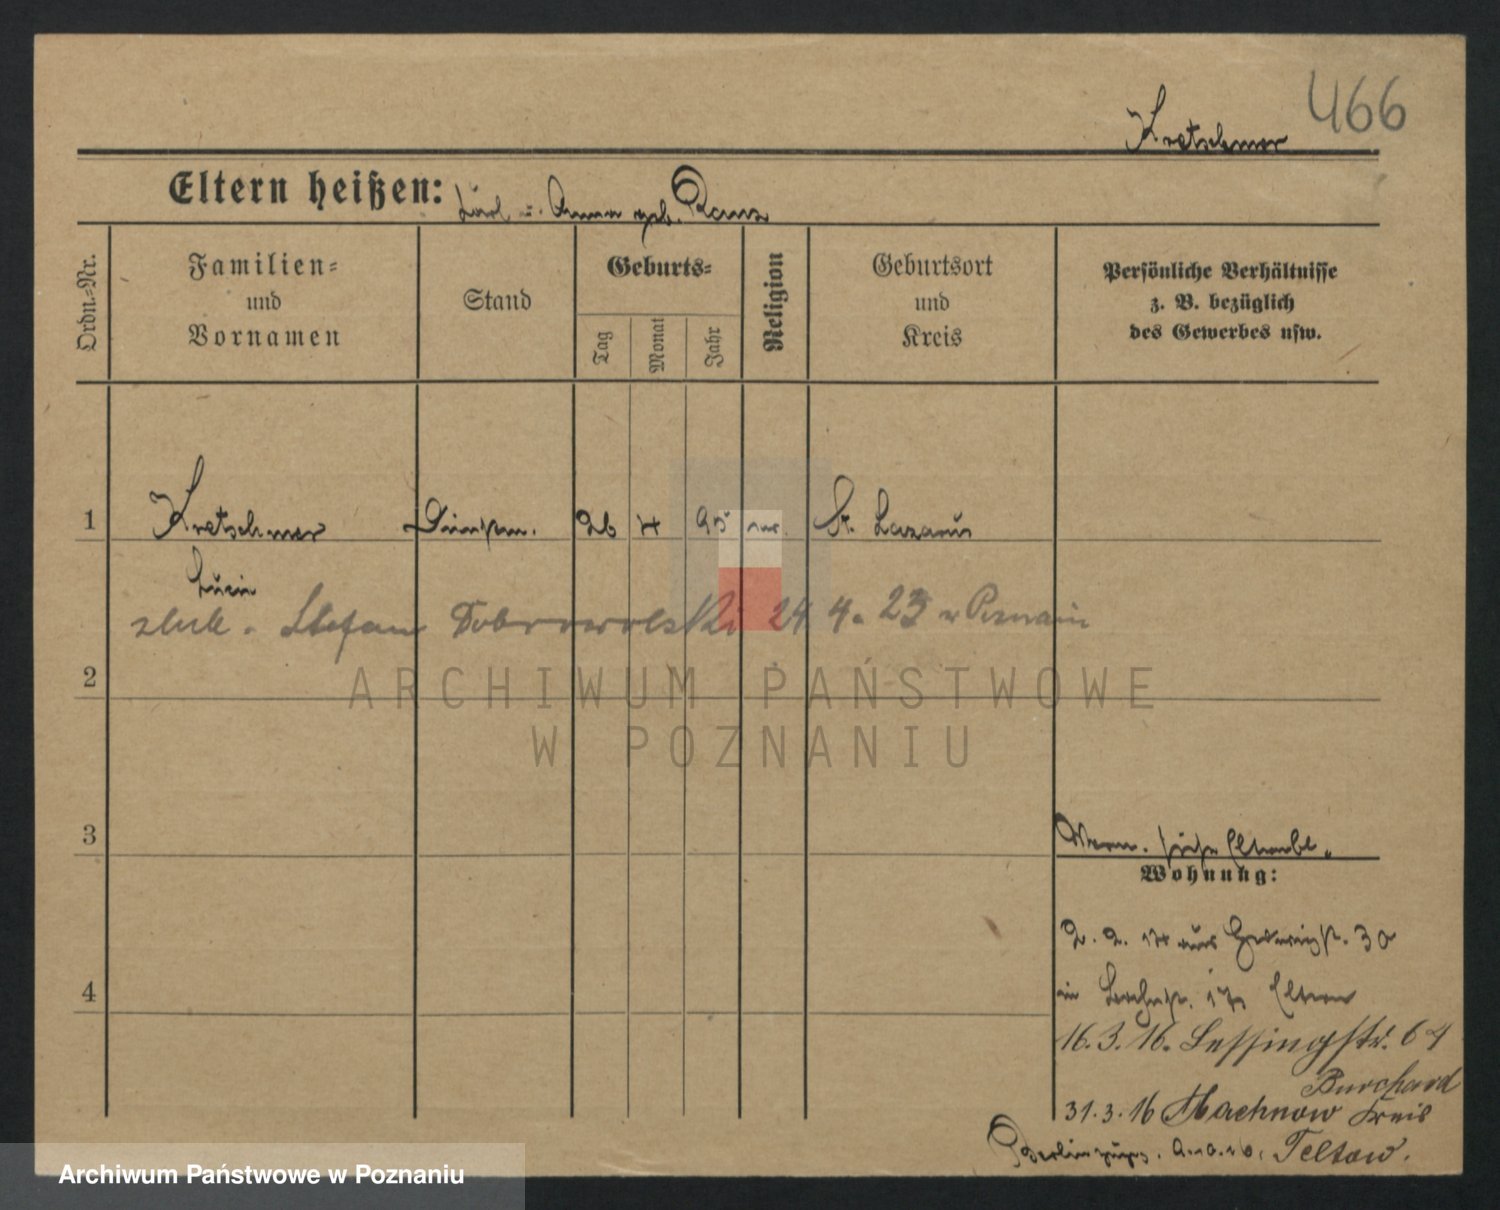 466
Kretschmer
Eltern heißen: Karl u. Anna geb.
Ordn.=Nr.
Familien=
und
Vornamen
Stand
Geburts=
Tag
Monat
Jahr
Religion
Geburtsort
und
Kreis
Persönliche Verhältnisse
z. B. bezüglich
des Gewerbes usw.
1 Kretschmer 26 4 95 St. Lazarus
Stefan Dobrowolski 24 4. 23 w Poznaniu
2
ARCHIWUM PAŃSTWOWE
W POZNANIU
3
Wohnung:
2. 2. 14 aus 30
4
in Eltern
16. 3. 16. Lessingstr. 64
Burchard
31. 3. 16 Machnow Kreis
Teltow.
Archiwum Państwowe w Poznaniu